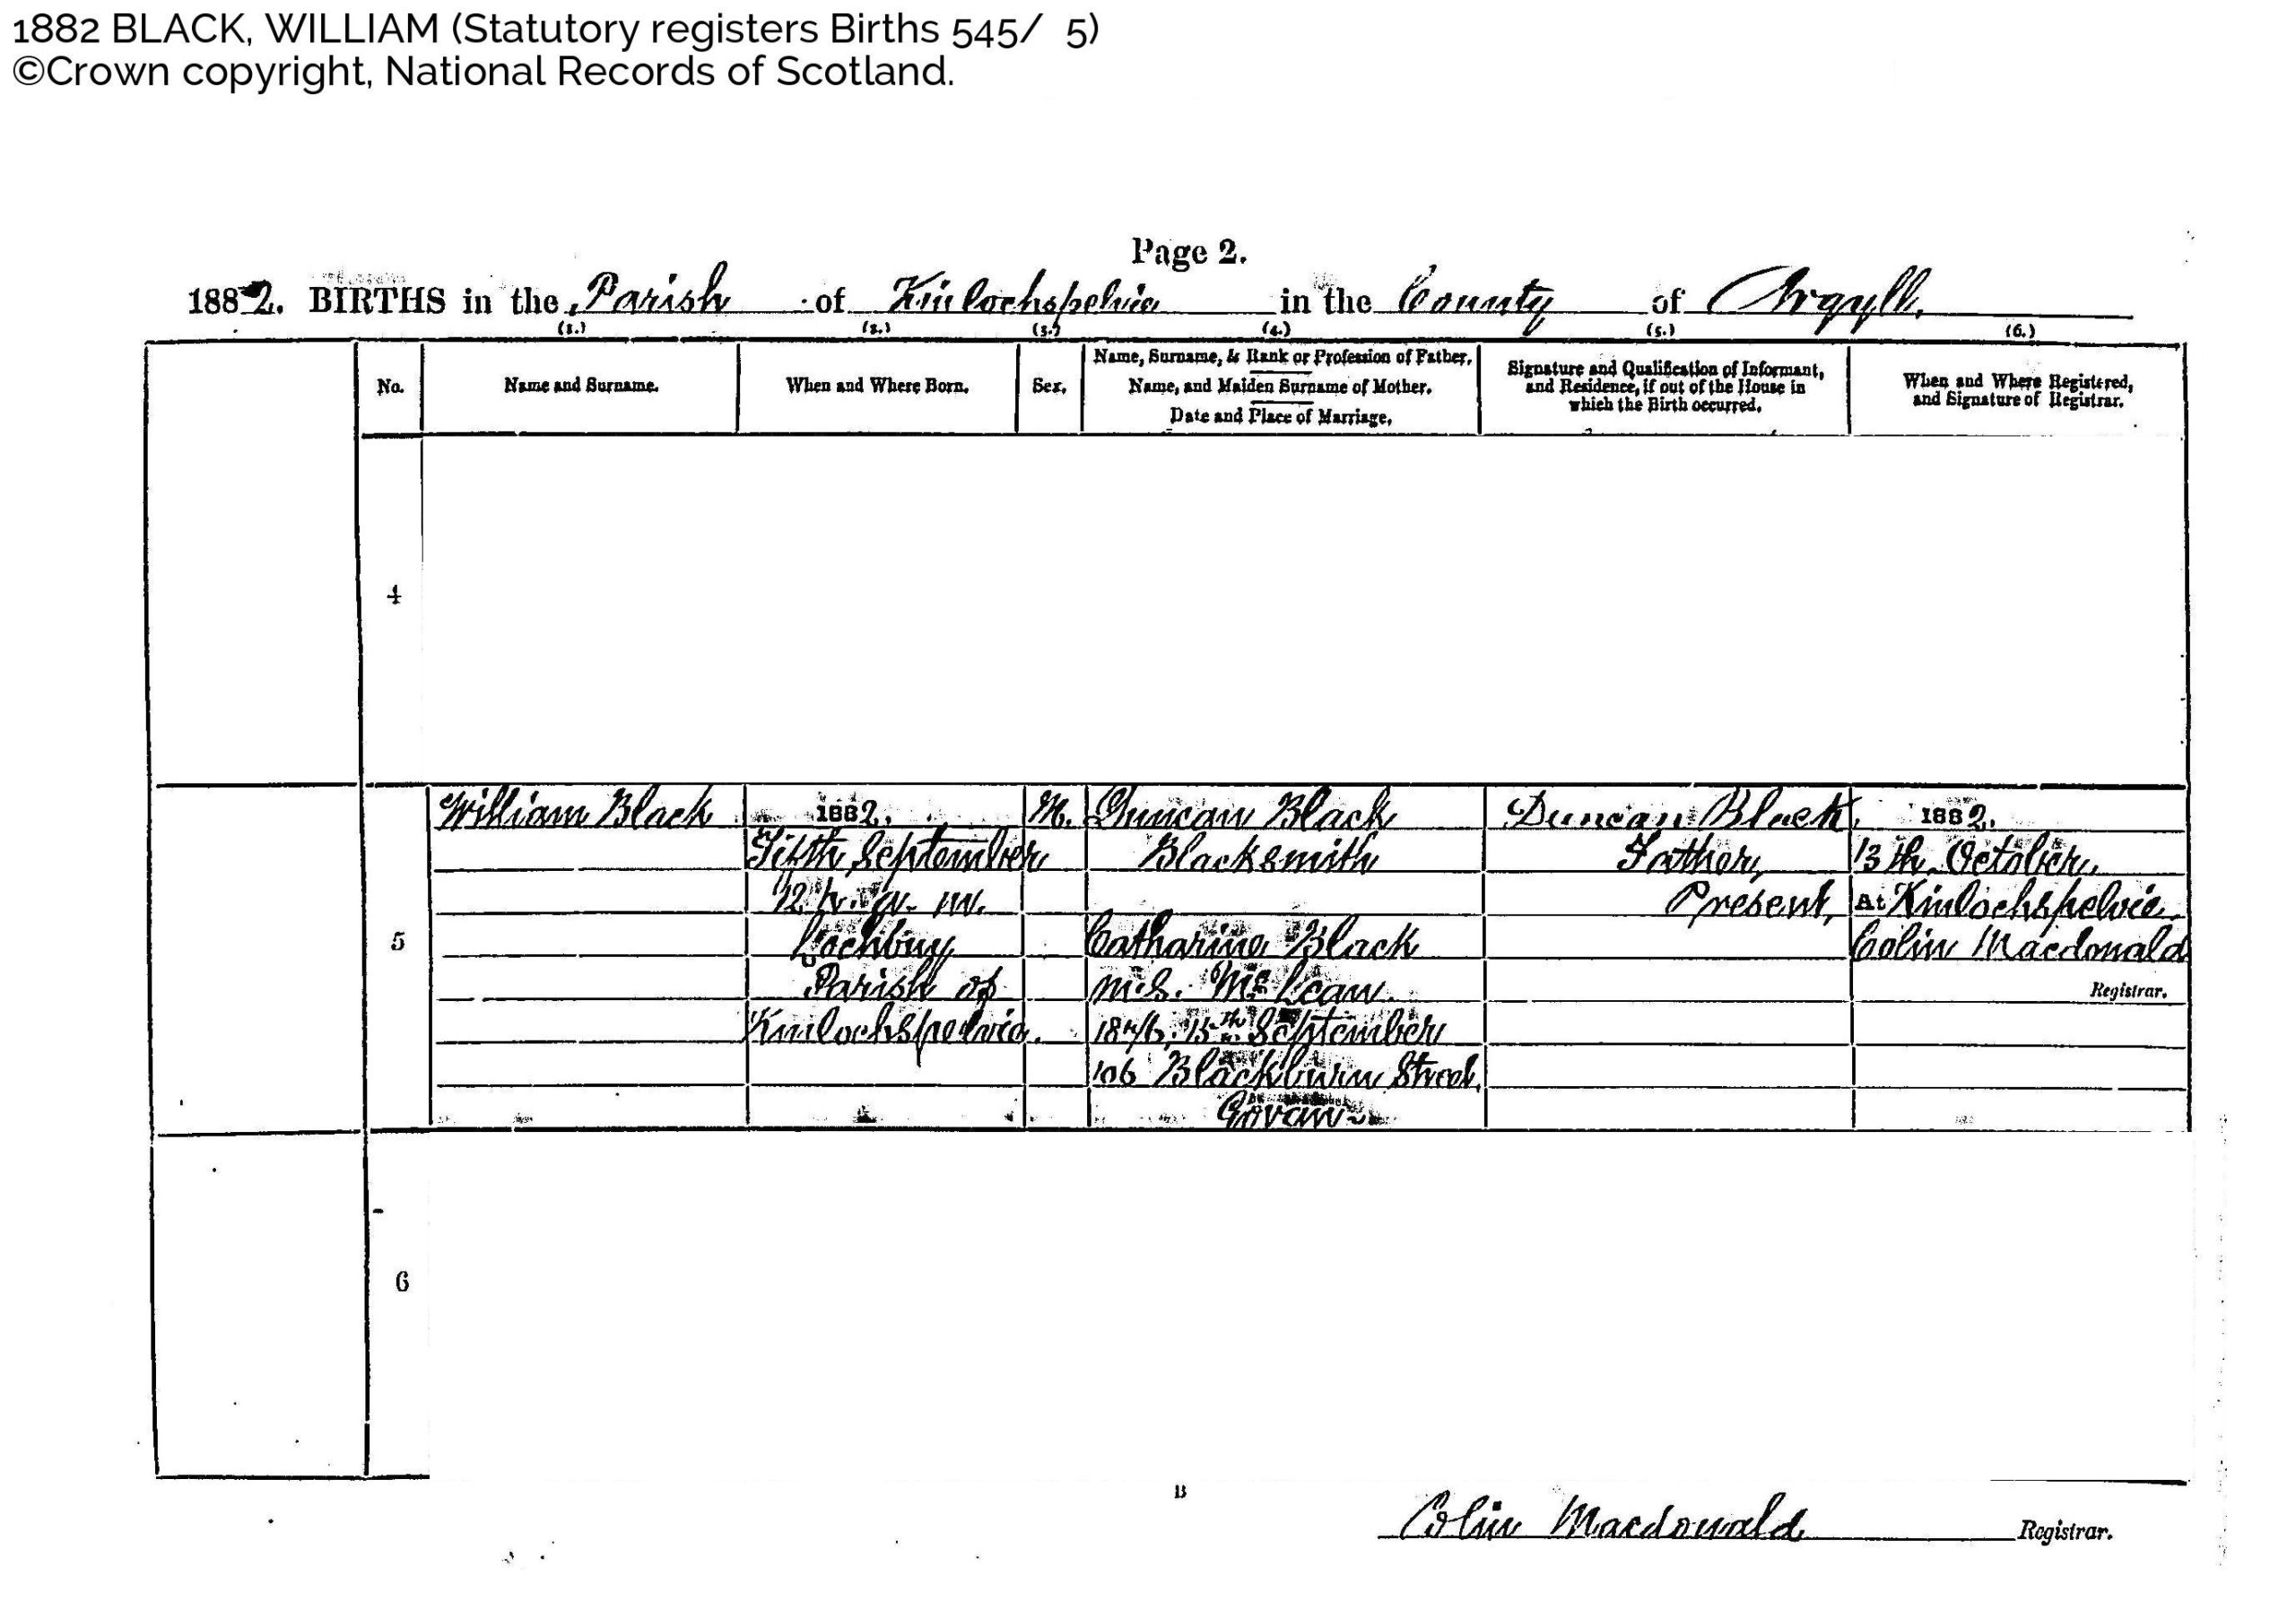 1882 BLACK, WILLIAM (Statutory registers Births 545/ 5)
©Crown copyright, National Records of Scotland.
Page 2.
1882. BIRTHS in the Parish of Kinlochspelvie in the County of Argyll.
(1.) (2.) (3.) (4.) (5.) (6.)
No.
Name and Surname.
When and Where Born.
Sex.
Name, Surname, & Rank or Profession of Father.
Name, and Maiden Surname of Mother.
Date and Place of Marriage.
Signature and Qualification of Informant,
and Residence, if out of the House in
which the Birth occurred.
When and Where Registered,
and Signature of Registrar.
4
5
William Black
1882.
Fifth September
h. m.
Lochbuy
Parish of
Kinlochspelvie.
M.
Duncan Black
Blacksmith
Catharine Black
m.s. McLean.
15th September
106 Blackburn Street,
Govan
Duncan Black,
Father,
Present,
1882.
13th October,
At Kinlochspelvie.
Colin Macdonald
Registrar.
6
B
Colin Macdonald Registrar.